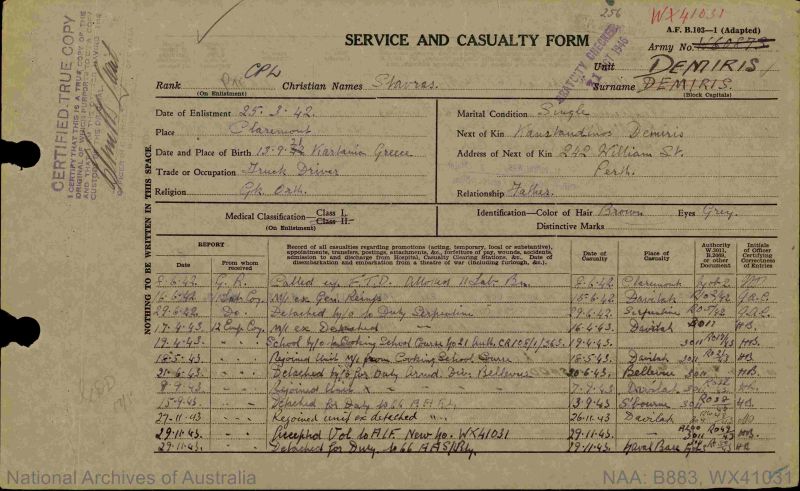 256
WX41031
SERVICE AND CASUALTY FORM
A.F. B.103—1 (Adapted)
Army No.
Unit
CERTIFIED TRUE COPY
I CERTIFY THAT THIS IS A TRUE COPY OF THE
ORIGINAL OF WHICH
Rank Pte CPL Christian Names Stavros.
DEMIRIS
Surname DEMIRIS.
(On Enlistment) (Block Capitals)
Date of Enlistment 25.3.42.
Place Claremont
Date and Place of Birth 13.9. Kartania Greece
Trade or Occupation Truck Driver
Religion Gk Orth.
Marital Condition Single
Next of Kin Konstandinos Demiris
Address of Next of Kin 242 William St.
Perth.
Relationship Father.
Medical Classification Class I.
(On Enlistment) Class II.
Identification—Color of Hair Brown Eyes Grey.
Distinctive Marks
NOTHING TO BE WRITTEN IN THIS SPACE.
REPORT
Date
From whom received
Record of all casualties regarding promotions (acting, temporary, local or substantive),
appointments, transfers, postings, attachments, &c., forfeiture of pay, wounds, accidents,
admission to and discharge from Hospital, Casualty Clearing Stations, &c. Date of
disembarkation and embarkation from a theatre of war (including furlough, &c.).
Date of Casualty
Place of Casualty
Authority W.3011, B.2069, or other Document
Initials of Officer Certifying Correctness of Entries
8.6.42. G.R. Called up F.T.D. Allotted 11 Lab. Bn. 8.6.42 Claremont
16.6.42 M/I ex Gen. Reinfs 15.6.42 Davilak
29.6.42 Do. Detached to Duty Serpentine 29.6.42 Serpentine
17.4.43 12 Emp. Coy. M/I ex Detached 16.4.43 Davilak 3011 HB.
19.4.43 School Cooking School Course No 21 19.4.43 3011 HB.
18.5.43 Rejoined Unit M/I from Cooking School Course 18.5.43 Davilak 3011 HB.
21.6.43 Detached for Duty Armd. Div. Bellevue 20.6.43 Bellevue 3011 HB.
8.9.43 Rejoined Unit 7.9.43 Davilak 3011
15.9.43 Detached for Duty to 66 3.9.43 S'bourne 3011 HB
27.11.43 Rejoined unit ex detached 26.11.43 Davilak
29.11.43 Accepted Vol. to A.I.F. New No. WX41031 29.11.43. 3011 HB.
29.11.43. Detached for Duty to 66 A.A.S/L Bty. 29.11.43 Naval Base HB
National Archives of Australia
NAA: B883, WX41031